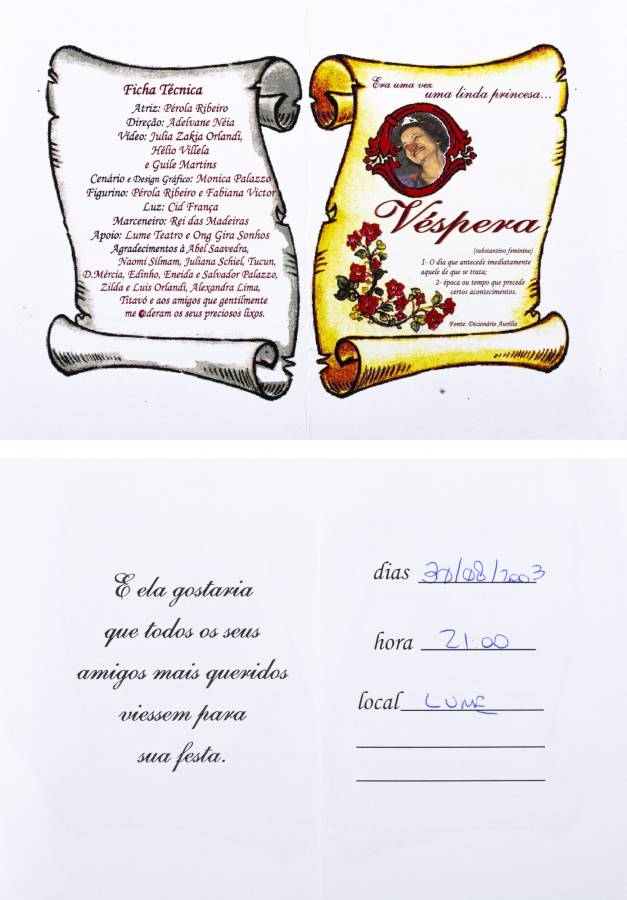 Ficha Técnica
Atriz: Pérola Ribeiro
Direção: Adelvane Néia
Vídeo: Julia Zakia Orlandi,
Hélio Villela
e Guile Martins
Cenário e Design Gráfico: Monica Palazzo
Figurino: Pérola Ribeiro e Fabiana Victor
Luz: Cid França
Marceneiro: Rei das Madeiras
Apoio: Lume Teatro e Ong Gira Sonhos
Agradecimentos à Abel Saavedra,
Naomi Silmam, Juliana Schiel, Tucun,
D.Mércia, Edinho, Eneida e Salvador Palazzo,
Zilda e Luis Orlandi, Alexandra Lima,
Titavó e aos amigos que gentilmente
me cederam os seus preciosos lixos.
Era uma vez
uma linda princesa...
Véspera
(substantivo feminino)
1- O dia que antecede imediatamente
aquele de que se trata;
2- época ou tempo que precede
certos acontecimentos.
Fonte: Dicionário Aurélio
E ela gostaria
que todos os seus
amigos mais queridos
viessem para
sua festa.
dias 30/08/2003
hora 21:00
local LUME